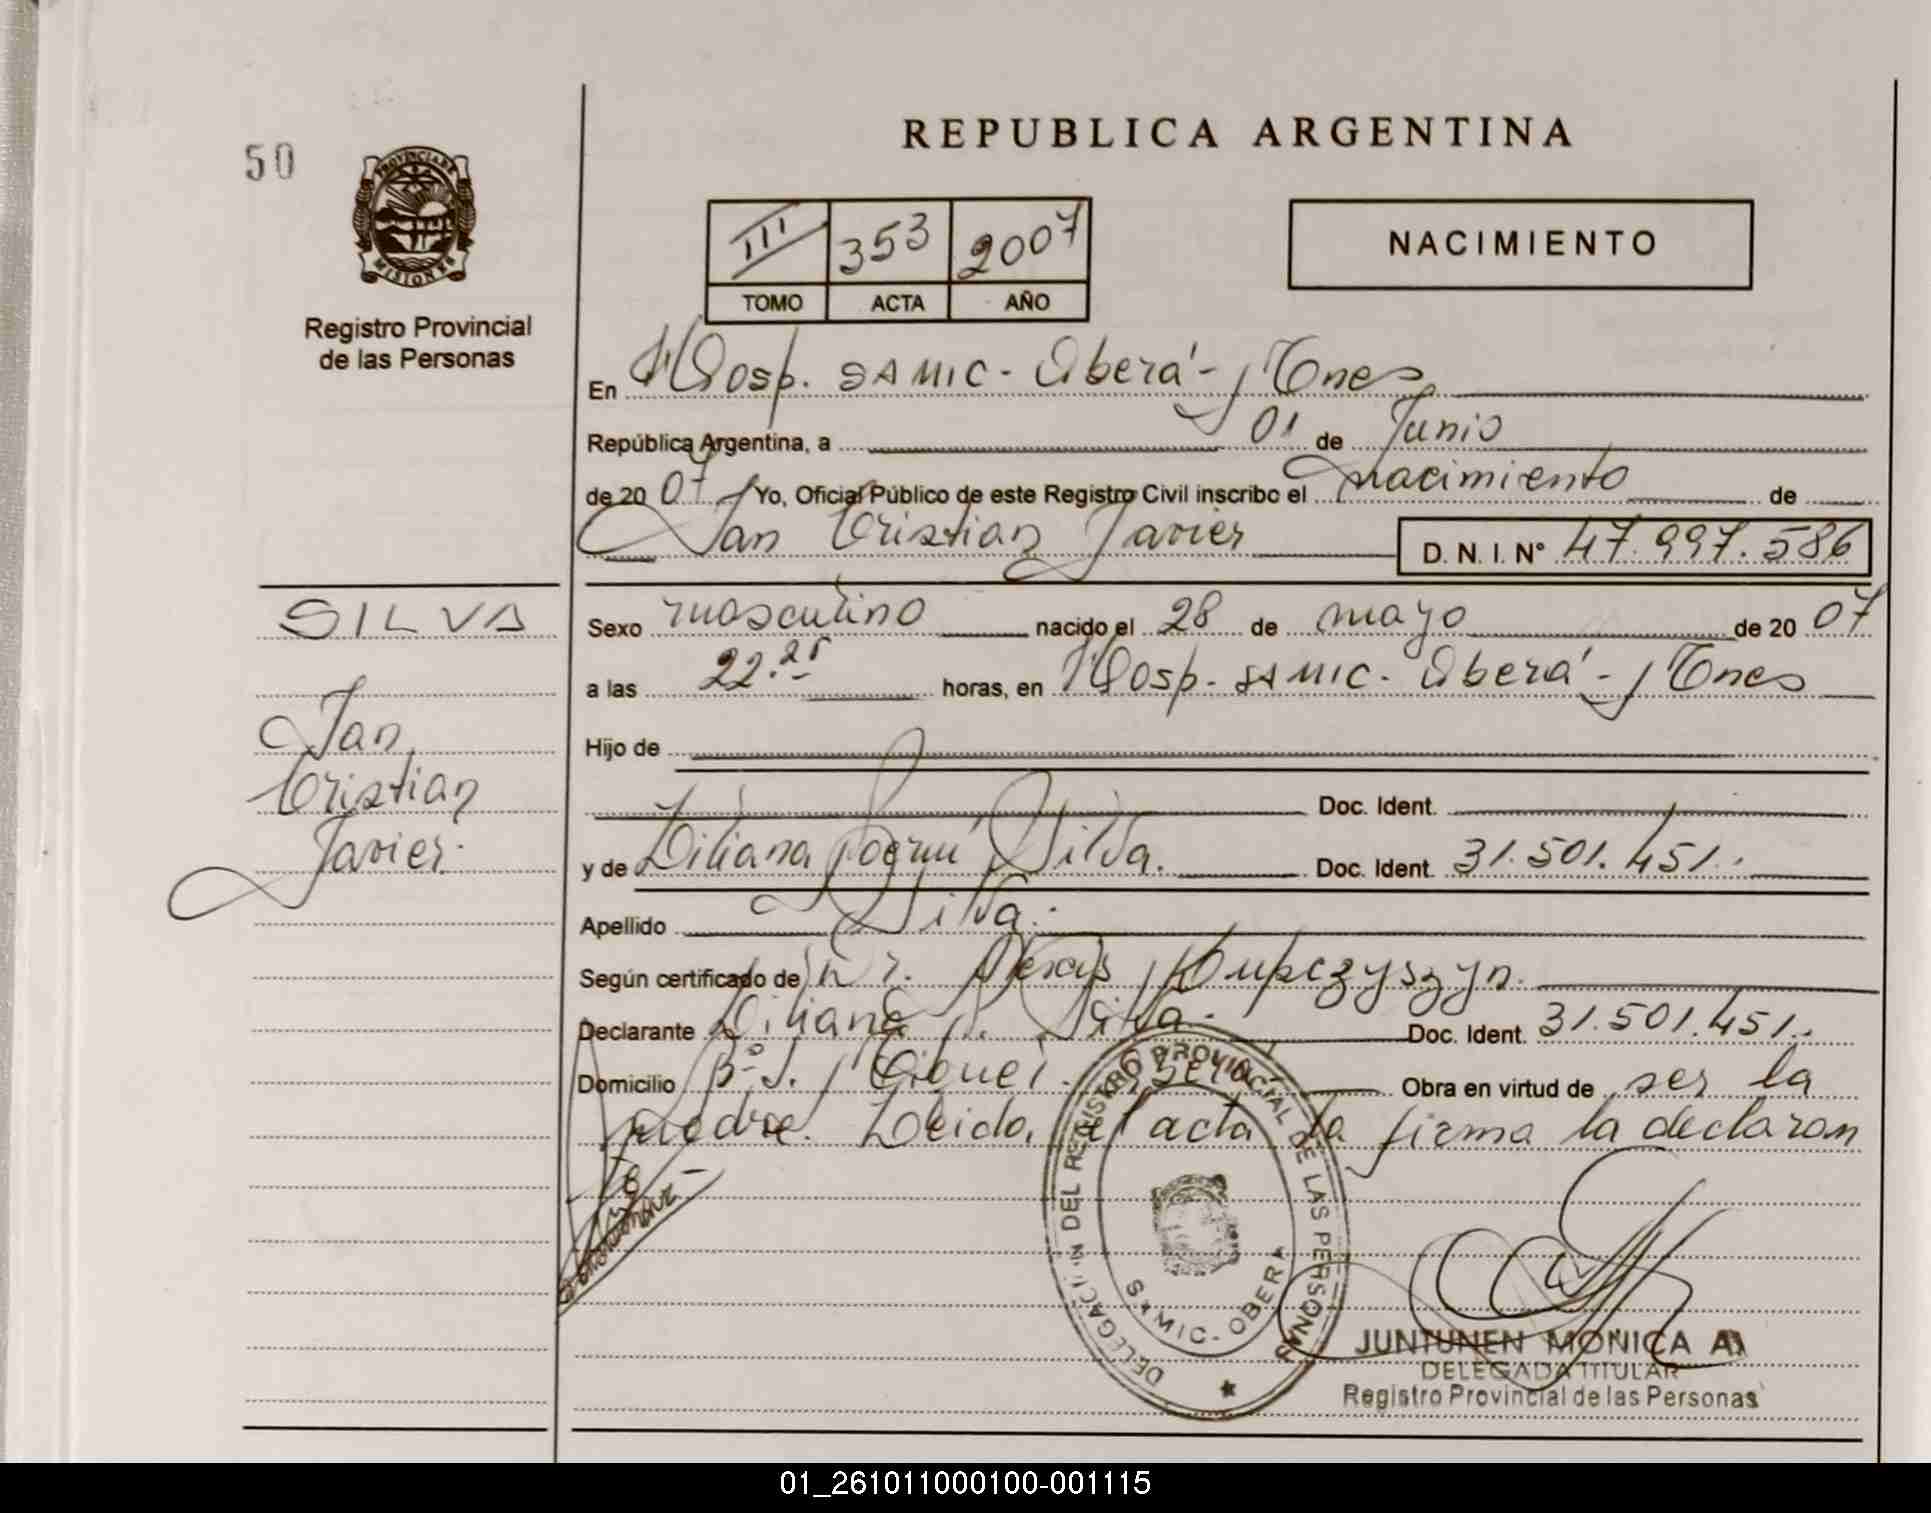 50
PROVINCIA DE
MISIONES
Registro Provincial
de las Personas
REPUBLICA ARGENTINA
III 353 2007
TOMO ACTA AÑO
NACIMIENTO
En Hosp. SAMIC - Oberá - Mnes
República Argentina, a 01 de Junio
de 20 07 Yo, Oficial Público de este Registro Civil inscribo el nacimiento de
Ian Cristian Javier D. N. I. Nº 47.997.586
SILVA
Ian
Cristian
Javier.
Sexo masculino nacido el 28 de mayo de 20 07
a las 22.25 horas, en Hosp. SAMIC - Oberá - Mnes
Hijo de
Doc. Ident.
y de Liliana Silva. Doc. Ident. 31.501.451.
Apellido Silva.
Según certificado de Dr. Alexis Kupczyszyn.
Declarante Liliana Silva. Doc. Ident. 31.501.451.
Domicilio Bº S. Miguel. Oberá Obra en virtud de ser la
madre. Leida el acta la firma la declaran
te
DELEGACION DEL REGISTRO PROVINCIAL DE LAS PERSONAS
SAMIC - OBERA
JUNTUNEN MONICA A
DELEGADA TITULAR
Registro Provincial de las Personas
01_261011000100-001115